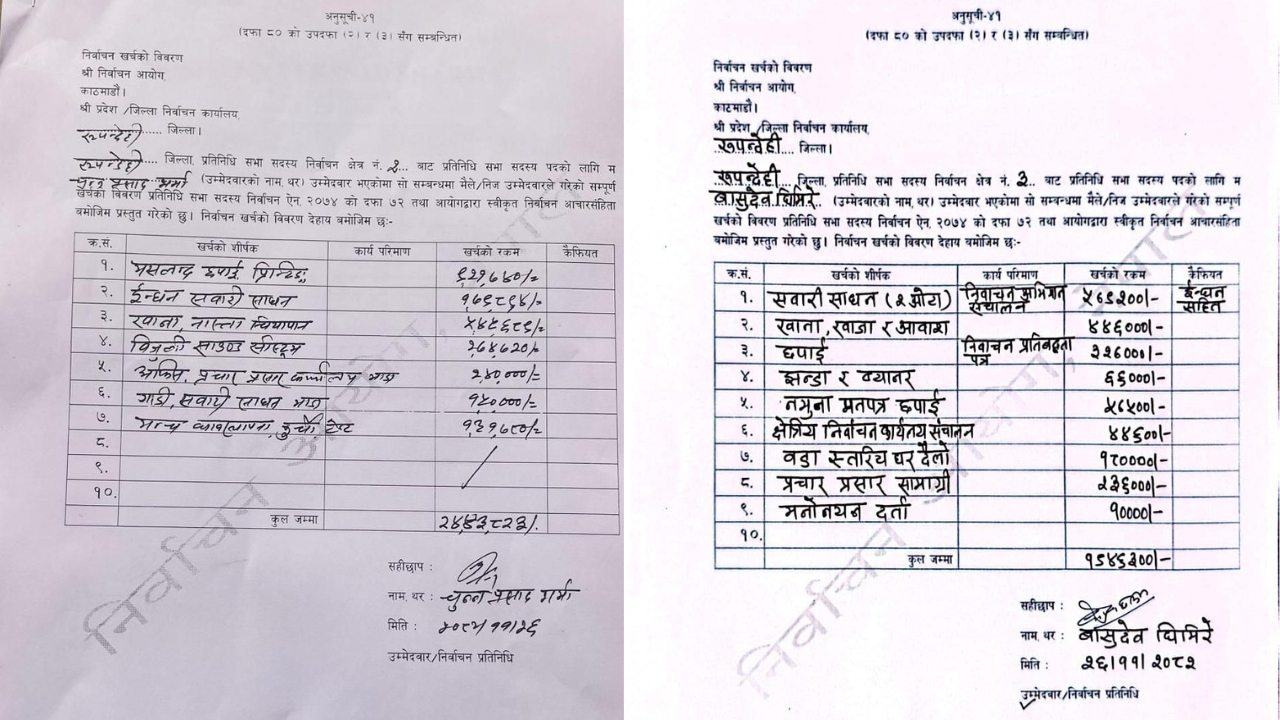 अनुसूची-४१
(दफा ८० को उपदफा (२) र (३) सँग सम्बन्धित)
निर्वाचन खर्चको विवरण
श्री निर्वाचन आयोग,
काठमाडौं।
श्री प्रदेश /जिल्ला निर्वाचन कार्यालय,
रूपन्देही...... जिल्ला।
रूपन्देही.... जिल्ला, प्रतिनिधि सभा सदस्य निर्वाचन क्षेत्र नं. २... बाट प्रतिनिधि सभा सदस्य पदको लागि म
चुन्न प्रसाद शर्मा (उम्मेदवारको नाम, थर) उम्मेदवार भएकोमा सो सम्बन्धमा मैले/निज उम्मेदवारले गरेको सम्पूर्ण
खर्चको विवरण प्रतिनिधि सभा सदस्य निर्वाचन ऐन, २०७४ को दफा ७२ तथा आयोगद्वारा स्वीकृत निर्वाचन आचारसंहिता
बमोजिम प्रस्तुत गरेको छु। निर्वाचन खर्चको विवरण देहाय बमोजिम छः-
क्र.सं. खर्चको शीर्षक कार्य परिमाण खर्चको रकम कैफियत
१. मसलन्द छपाई प्रिन्टिङ्ग
२. ईन्धन सवारी साधन १७६८६४/=
३. खाना, नास्ता चियापान
४. बिजुली साउण्ड सीस्टम
५. अफिस, प्रचार प्रसार कार्यालय भाडा २४०,०००/=
६. गाडी, सवारी साधन भाडा १५०,०००/=
७. मञ्च व्यवस्थापन, कुर्ची टेण्ट
८.
९.
१०.
कुल जम्मा
सहीछाप :
नाम, थर : चुन्न प्रसाद शर्मा
मिति : २०८२/११/२६
उम्मेदवार/निर्वाचन प्रतिनिधि
निर्वाचन आयोग,
अनुसूची-४१
(दफा ८० को उपदफा (२) र (३) सँग सम्बन्धित)
निर्वाचन खर्चको विवरण
श्री निर्वाचन आयोग,
काठमाडौं।
श्री प्रदेश /जिल्ला निर्वाचन कार्यालय,
रूपन्देही.... जिल्ला।
रूपन्देही... जिल्ला, प्रतिनिधि सभा सदस्य निर्वाचन क्षेत्र नं. ३... बाट प्रतिनिधि सभा सदस्य पदको लागि म
बासुदेव घिमिरे.. (उम्मेदवारको नाम, थर) उम्मेदवार भएकोमा सो सम्बन्धमा मैले/निज उम्मेदवारले गरेको सम्पूर्ण
खर्चको विवरण प्रतिनिधि सभा सदस्य निर्वाचन ऐन, २०७४ को दफा ७२ तथा आयोगद्वारा स्वीकृत निर्वाचन आचारसंहिता
बमोजिम प्रस्तुत गरेको छु। निर्वाचन खर्चको विवरण देहाय बमोजिम छः-
क्र.सं. खर्चको शीर्षक कार्य परिमाण खर्चको रकम कैफियत
१. सवारी साधन (२ ओटा) निर्वाचन अभियान संचालन ५६९२००/- ईन्धन सहित
२. खाना, खाजा र आवाश ४४६०००/-
३. छपाई निर्वाचन प्रतिबद्धता पत्र ३२६०००/-
४. झन्डा र ब्यानर ६६०००/-
५. नमुना मतपत्र छपाई ५६५००/-
६. क्षेत्रिय निर्वाचन कार्यलय संचालन ४४६००/-
७. वडा स्तरिय घर दैलो १८००००/-
८. प्रचार प्रसार सामाग्री २३६०००/-
९. मनोनयन दर्ता १००००/-
१०.
कुल जम्मा
सहीछाप :
नाम, थर : बासुदेव घिमिरे
मिति : २६/११/२०८२
उम्मेदवार/निर्वाचन प्रतिनिधि
निर्वाचन आयोग,